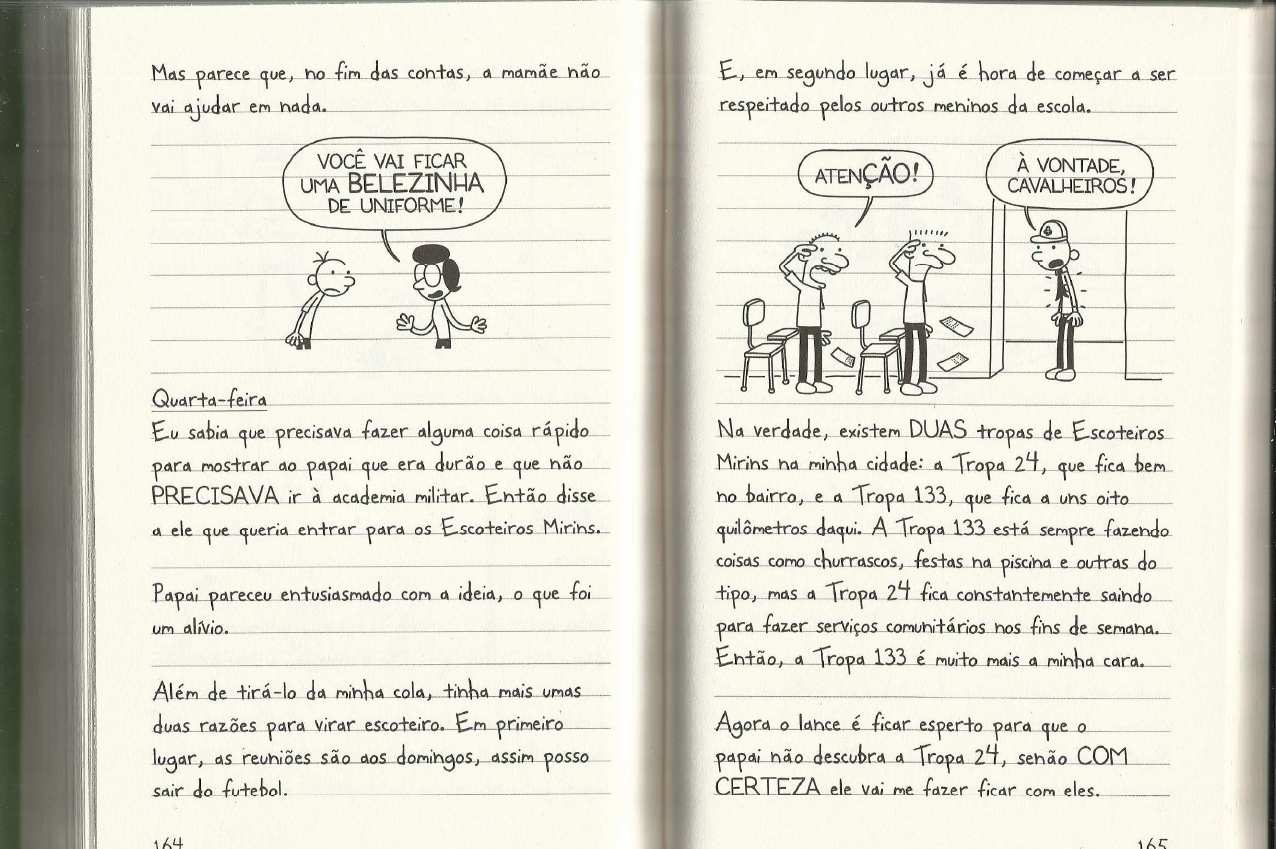 Mas parece que, no fim das contas, a mamãe não
vai ajudar em nada.
VOCÊ VAI FICAR
UMA BELEZINHA
DE UNIFORME!
Quarta-feira
Eu sabia que precisava fazer alguma coisa rápido
para mostrar ao papai que era durão e que não
PRECISAVA ir à academia militar. Então disse
a ele que queria entrar para os Escoteiros Mirins.
Papai pareceu entusiasmado com a ideia, o que foi
um alívio.
Além de tirá-lo da minha cola, tinha mais umas
duas razões para virar escoteiro. Em primeiro
lugar, as reuniões são aos domingos, assim posso
sair do futebol.
164
E, em segundo lugar, já é hora de começar a ser
respeitado pelos outros meninos da escola.
ATENÇÃO!
À VONTADE,
CAVALHEIROS!
Na verdade, existem DUAS tropas de Escoteiros
Mirins na minha cidade: a Tropa 24, que fica bem
no bairro, e a Tropa 133, que fica a uns oito
quilômetros daqui. A Tropa 133 está sempre fazendo
coisas como churrascos, festas na piscina e outras do
tipo, mas a Tropa 24 fica constantemente saindo
para fazer serviços comunitários nos fins de semana.
Então, a Tropa 133 é muito mais a minha cara.
Agora o lance é ficar esperto para que o
papai não descubra a Tropa 24, senão COM
CERTEZA ele vai me fazer ficar com eles.
165